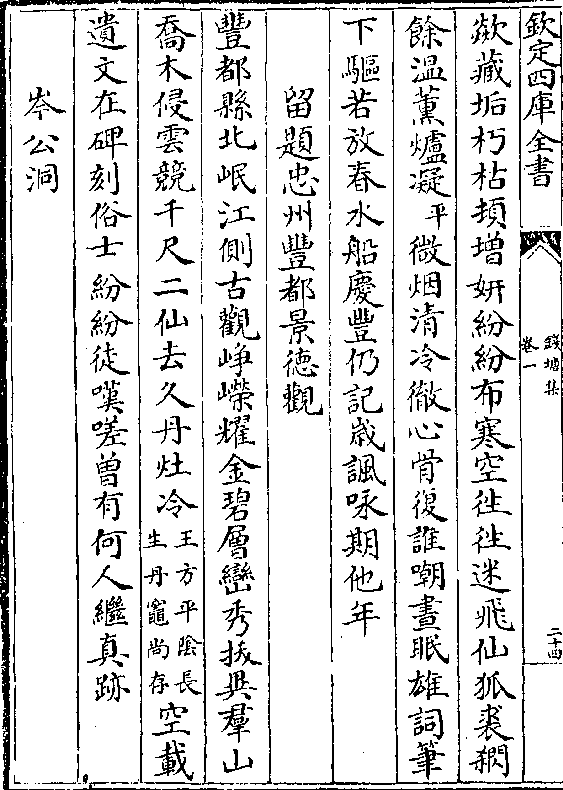 欽定四庫全書
錢塘集
卷一
二十四
歘藏垢朽枯頓增妍紛紛布寒空徃徃迷飛仙狐裘閟
餘温薫爐凝平微烟清冷徹心骨復誰嘲晝眠雄詞筆
下驅若放春水船慶豐仍記嵗諷咏期他年
留題忠州豐都景徳觀
豐都縣北岷江側古觀崢嶸耀金碧層巒秀拔與羣山
喬木侵雲競千尺二仙去久丹灶冷王方平隂長生丹竈尚存空載
遺文在碑刻俗士紛紛徒嘆嗟曽有何人繼真跡
岑公洞